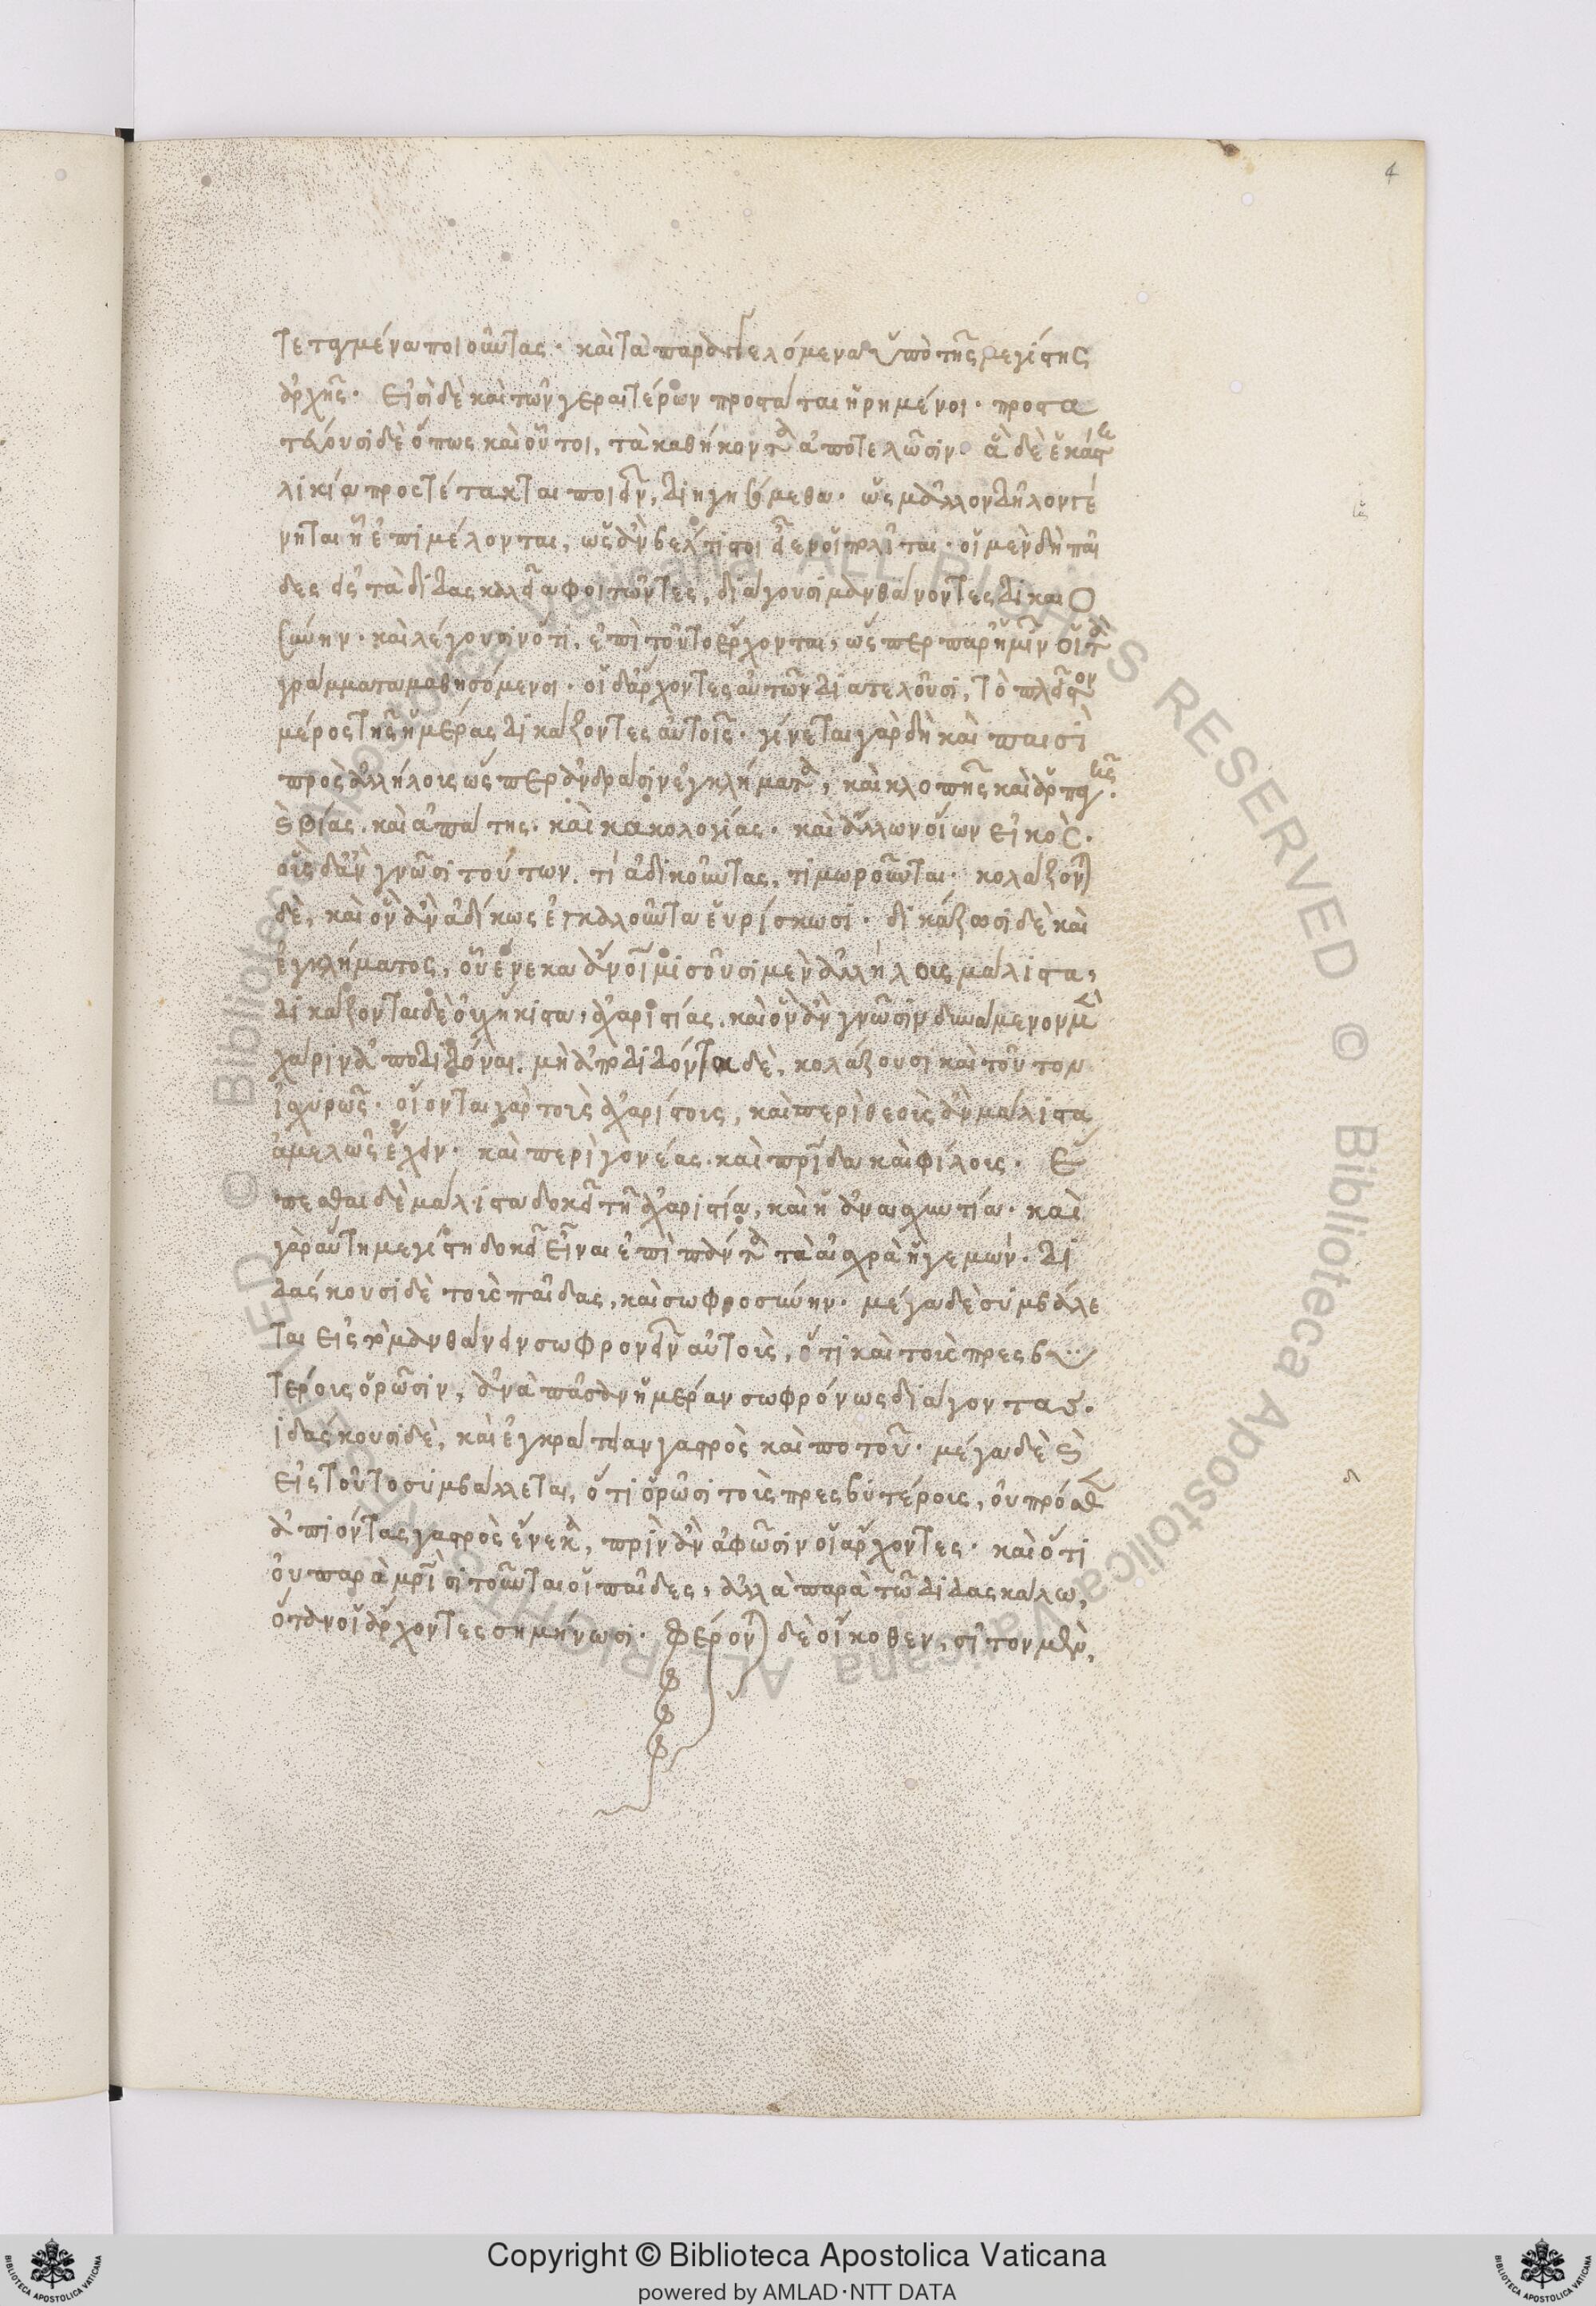 4
τεταγμένα ποιοῦντας· καὶ τὰ παραγγελόμενα ὑπὸ τῆς μεγίστης
ἀρχῆς· εἰσὶ δὲ καὶ τῶν γεραιτέρων προστάται ᾑρημένοι· προστα
τεύουσι δὲ ὅπως καὶ οὗτοι, τὰ καθήκοντα ἀποτελῶσιν· ἃ δὲ ἑκάστη
λικία προστέτακται ποιεῖν, διηγησόμεθα· ὡς μᾶλλον δῆλον γέ
νηται ᾗ ἐπιμέλονται, ὡς ἂν βέλτιστοι εἶεν οἱ πολῖται· οἱ μὲν δὴ παῖ
δες εἰς τὰ διδασκαλεῖα φοιτῶντες, διάγουσι μανθάνοντες δικαιο
σύνην· καὶ λέγουσιν ὅτι, ἐπὶ τοῦτο ἔρχονται, ὥσπερ παρ' ἡμῖν οἱ τὰ
γράμματα μαθησόμενοι· οἱ δ' ἄρχοντες αὐτῶν διατελοῦσι, τὸ πλεῖστον
μέρος τῆς ἡμέρας δικάζοντες αὐτοῖς· γίνεται γὰρ δὴ καὶ παισὶ
πρὸς ἀλλήλοις ὥσπερ ἀνδράσιν ἐγκλήματα, καὶ κλοπῆς καὶ ἁρπαγῆς·
καὶ βίας· καὶ ἀπάτης· καὶ κακολογίας· καὶ ἄλλων οἵων εἰκός·
οὓς δ' ἂν γνῶσι τούτων, τὶ ἀδικοῦντας, τιμωροῦνται· κολάζουσι
δὲ, καὶ ὃν ἂν ἀδίκως ἐγκαλοῦντα εὑρίσκωσι· δικάζουσι δὲ καὶ
ἐγκλήματος, οὗ ἕνεκα ἄνοι μισοῦσι μὲν ἀλλήλους μάλιστα,
δικάζονται δὲ οὐχ ἥκιστα, ἀχαριστίας· καὶ ὃν ἂν γνῶσιν δυνάμενον μὲν
χάριν ἀποδιδόναι, μὴ ἀποδιδόντα δὲ, κολάζουσι καὶ τοῦτον
ἰσχυρῶς· οἴονται γὰρ τοὺς ἀχαρίστους, καὶ περὶ θεοὺς ἂν μάλιστα
ἀμελῶς ἔχειν· καὶ περὶ γονέας· καὶ πρίδα καὶ φίλους· ἕ
πεσθαι δὲ μάλιστα δοκεῖ τῇ ἀχαριστίᾳ, καὶ ἡ ἀναισχυντία· καὶ
γὰρ αὕτη μεγίστη δοκεῖ εἶναι ἐπὶ πάντα τὰ αἰσχρὰ ἡγεμών· δι
δάσκουσι δὲ τοὺς παῖδας, καὶ σωφροσύνην· μέγα δὲ συμβάλε
ται εἰς τὸ μανθάνειν σωφρονεῖν αὐτοὺς, ὅτι καὶ τοὺς πρεσβυ
τέρους ὁρῶσιν, ἀνὰ πᾶσαν ἡμέραν σωφρόνως διάγοντας·
ιδάσκουσι δὲ, καὶ ἐγκράτειαν γαστρὸς καὶ ποτοῦ· μέγα δὲ καὶ
εἰς τοῦτο συμβάλλεται, ὅτι ὁρῶσι τοὺς πρεσβυτέρους, οὐ πρόσθεν
ἀπιόντας γαστρὸς ἕνεκα, πρὶν ἂν ἀφῶσιν οἱ ἄρχοντες· καὶ ὅτι
οὐ παρὰ μρὶ σιτοῦνται οἱ παῖδες, ἀλλὰ παρὰ τῷ διδασκάλω,
ὅταν οἱ ἄρχοντες σημήνωσι· φέρονται δὲ οἴκοθεν, σῖτον μὲν,